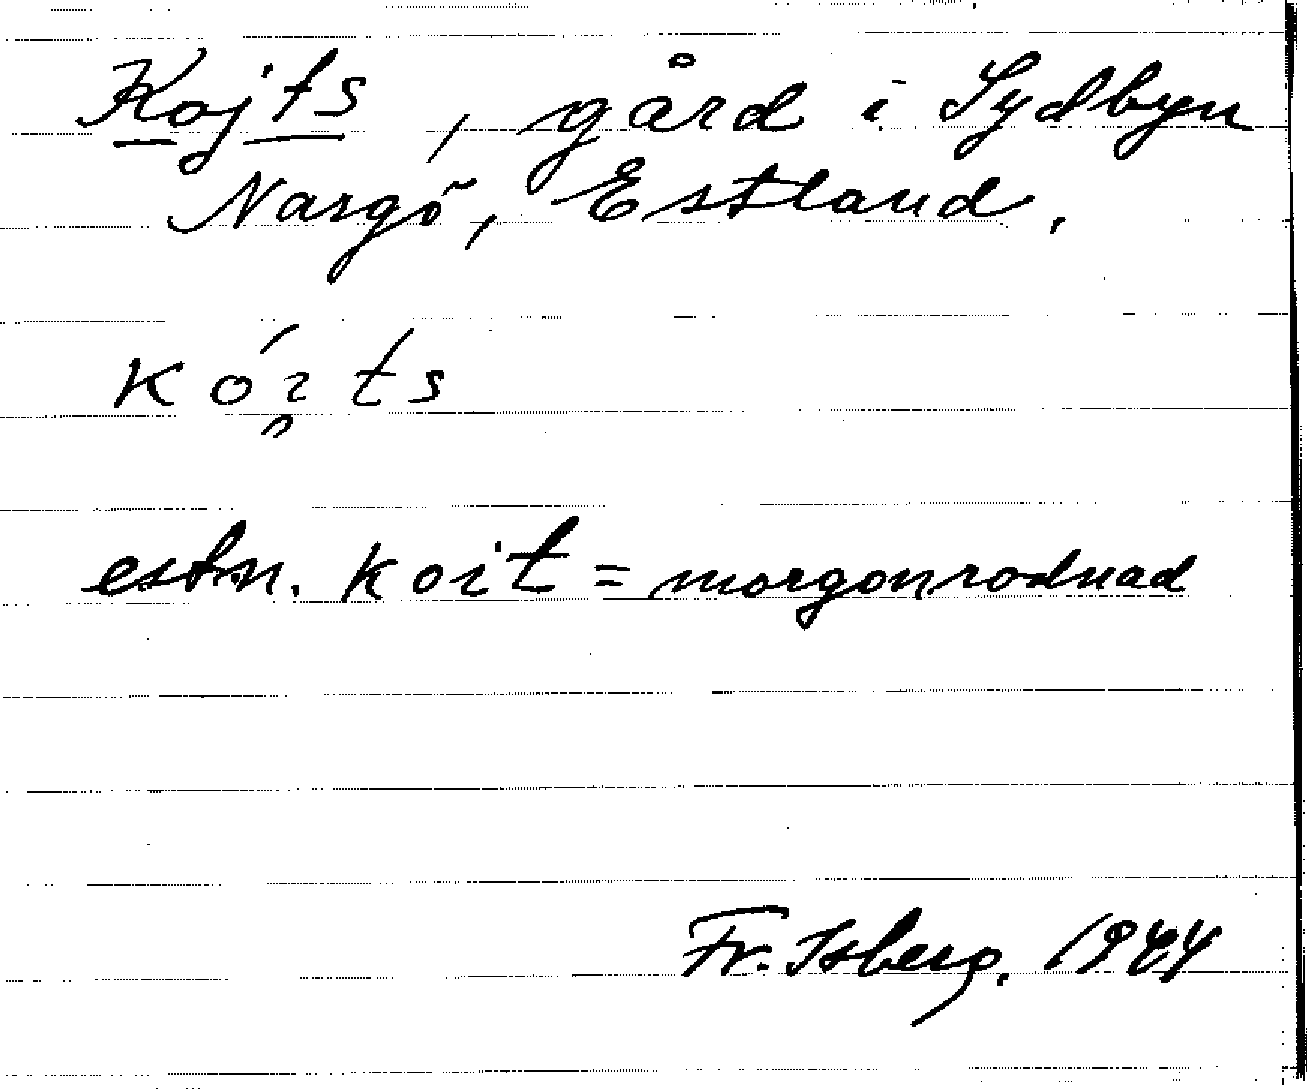 Kojts, gård i Sydbyn
Nargö, Estland.
kó́ı̯ts
estn. koit = morgonrodnad
Fr. Isberg. 1944